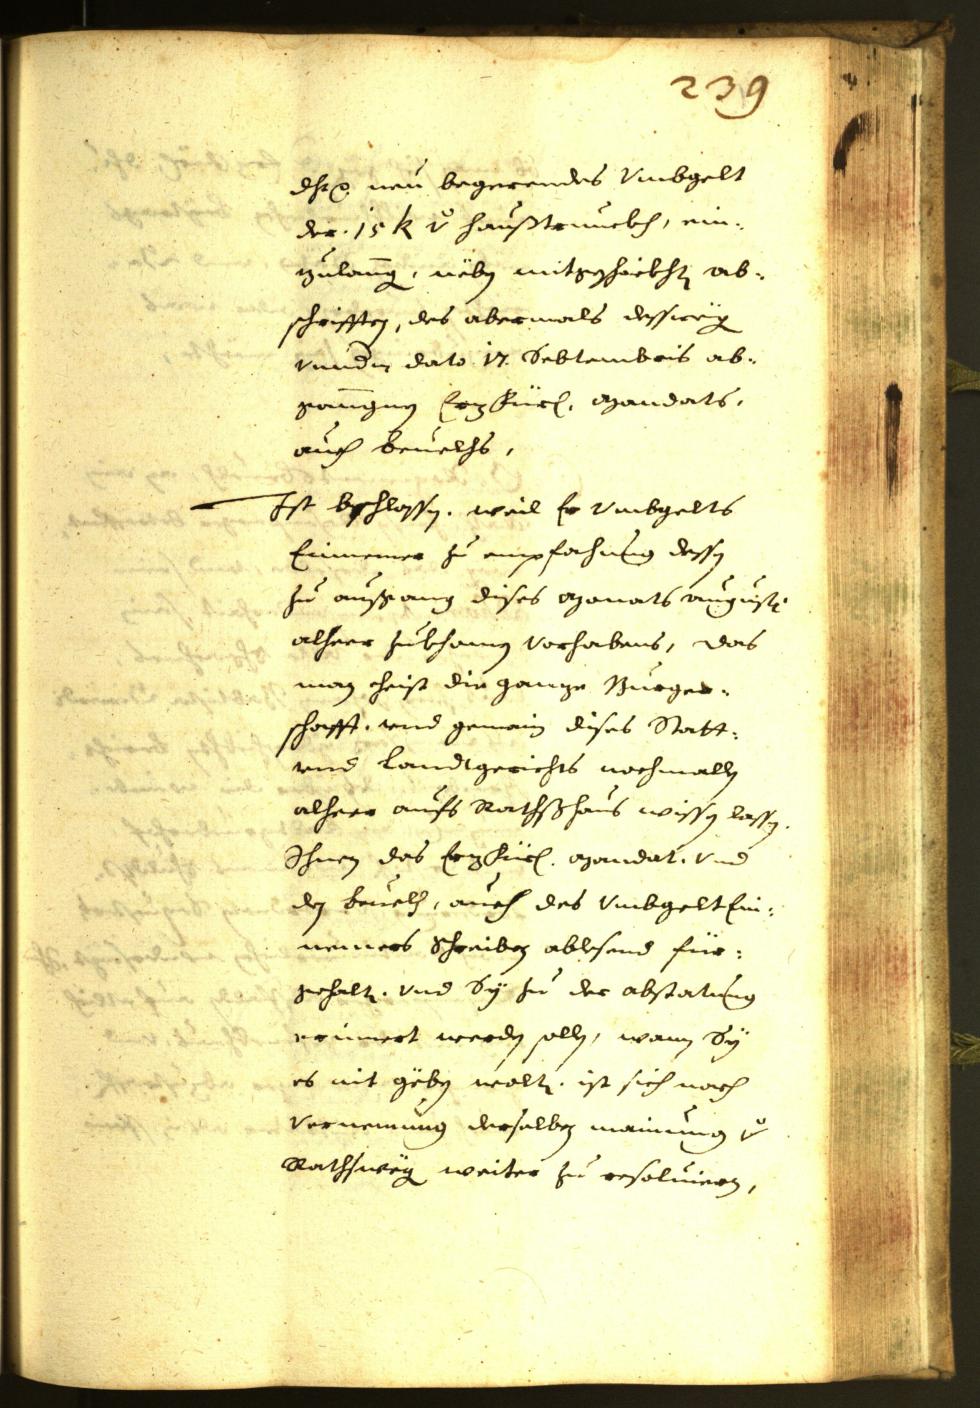 239
neu begerendes Vmbgelt
der 15 k haußtrunckh, ein-
zulanng, neben mitgeschickhten ab-
schrifften, des abermals desswegen
vnnderm dato 17. Septembris ab-
ganngnen Erzfürl. Mandats,
auch Beuelhs,
Ist beschlossen. weil Er Vmbgelts
Einnemer zu empfahung dessen
zu außgang dises Monats Augusti
alheer zukhomen Vorhabens, das
man die ganze Burger-
schafft. vnd gemain dises Statt-
vnd Landtgerichts nochmallen
alheer aufs Rathßhaus wissen lassen.
Ihnen das Erzfürl. Mandat. Vnd
den beuelh, auch des VmbgeltEin-
nemers Schreiben ablesend für-
gehalten. Vnd Sy zu der abstatung
erinnert werden sollen, wann Sy
es nit geben wolten. ist sich nach
Vernemung derselben mainung
Rathsweg weiter zu resoluiern,